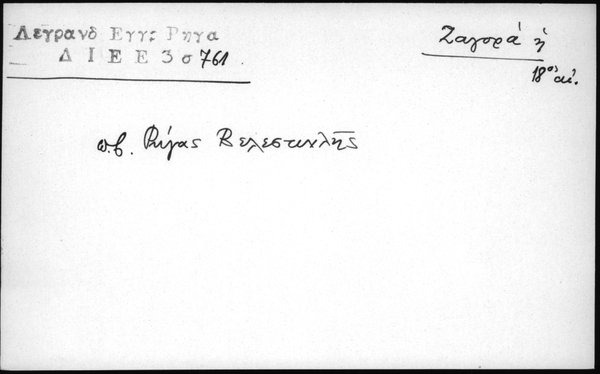 Λεγρανδ Εγγ: Ρηγα
Δ Ι Ε Ε 3 σ 761
Ζαγορά ἡ
18ος αἰ.
π.β. Ρήγας Βελεστινλῆς